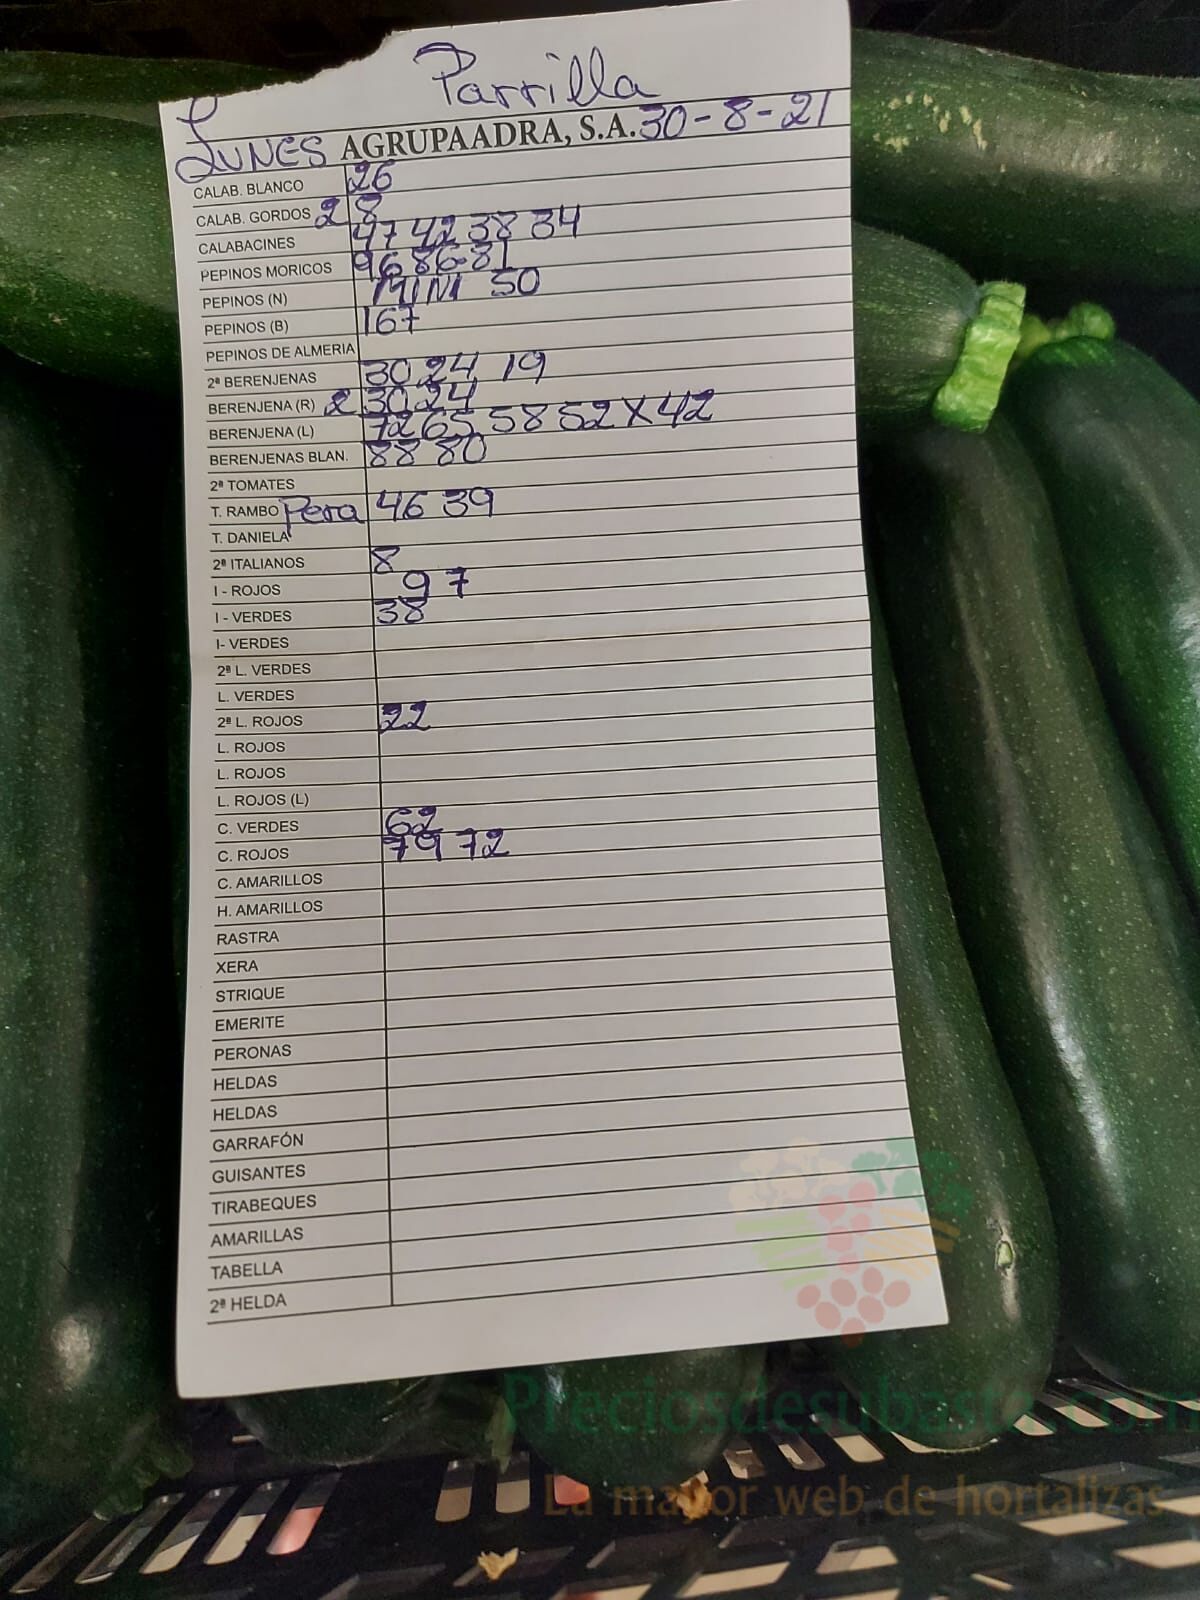 Parrilla
LUNES AGRUPAADRA, S.A. 30-8-21
CALAB. BLANCO 26
CALAB. GORDOS 2 8
CALABACINES 47 42 38 34
PEPINOS MORICOS 96 86-81
PEPINOS (N) MINI 50
PEPINOS (B) 167
PEPINOS DE ALMERIA
2ª BERENJENAS 30 24 19
BERENJENA (R) 2 30 24
BERENJENA (L) 72 65 58 52 X 42
BERENJENAS BLAN. 88 80
2ª TOMATES
T. RAMBO Pera 46 39
T. DANIELA
2ª ITALIANOS 8
I - ROJOS 97
I - VERDES 38
I- VERDES
2ª L. VERDES
L. VERDES
2ª L. ROJOS 22
L. ROJOS
L. ROJOS
L. ROJOS (L)
C. VERDES 62
C. ROJOS 79 72
C. AMARILLOS
H. AMARILLOS
RASTRA
XERA
STRIQUE
EMERITE
PERONAS
HELDAS
HELDAS
GARRAFÓN
GUISANTES
TIRABEQUES
AMARILLAS
TABELLA
2ª HELDA
Preciosdesubasta.com
La mayor web de hortalizas